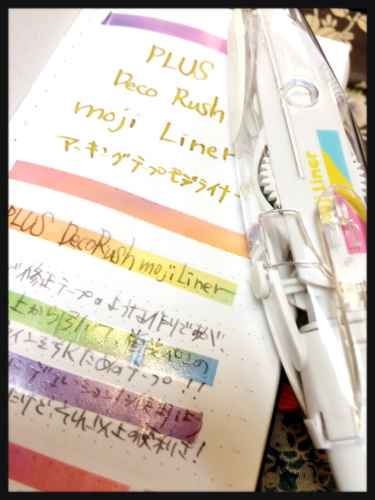 PLUS
Deco Rush
moji Liner
マーキングテープモジライナー
PLUS DecoRush mojiLiner
修正テープのような作りであい
上から引いて 蛍光ペンの
ラインを引くためのテープ!!
グラデーション
だけど、それ以上の便利さ!
Liner